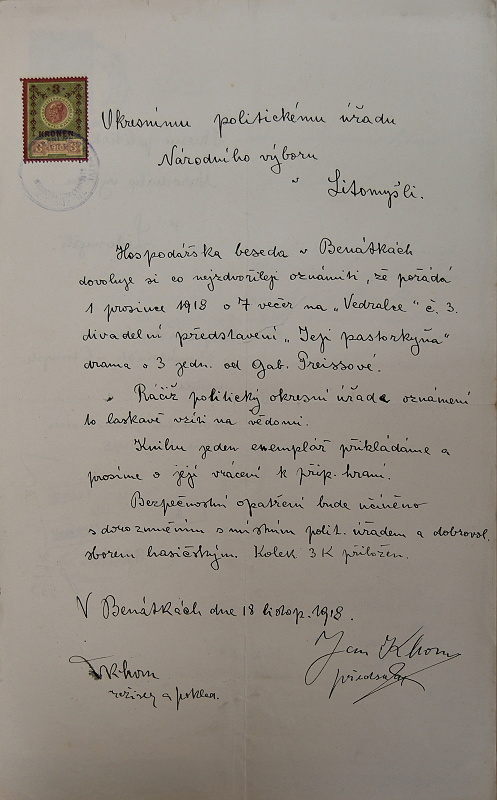 3
KRONEN
Okresnímu politickému úřadu
Národního výboru
v Litomyšli.
Hospodářska beseda v Benátkách
dovoluje si co nejzdvořileji oznámiti, že pořádá
1 prosince 1918 o 7 večer na „Vedralce" č. 3.
divadelní představení „Její pastorkyňa"
drama o 3 jedn. od Gab. Preissové.
Račiž politický okresní úřad oznámení
to laskavě vzíti na vědomí.
Knihu jeden exemplář přikládáme a
prosíme o její vrácení k příp. hraní.
Bezpečnostní opatření bude učiněno
s dorozuměním s místním polit. úřadem a dobrovol.
sborem hasičským. Kolek 3 K přiložen.
V Benátkách dne 18 listop. 1918.
Jan Khom
předseda
režisey a poklad.